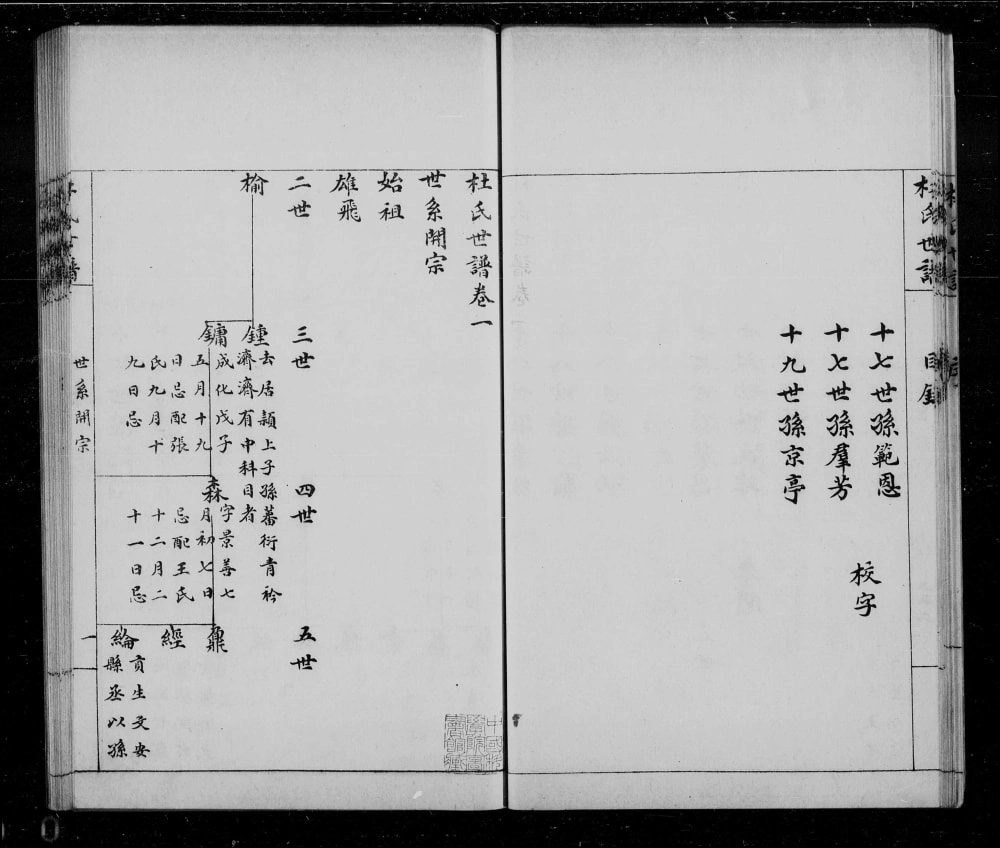 杜氏世譜
目錄
十七世孫範恩
十七世孫羣芳
十九世孫京亭
校字
杜氏世譜卷一
世系開宗
始祖
雄飛
二世
榆
三世
鍾去居潁上子孫蕃衍青衿
濟濟有中科目者
鏞成化戊子
五月十九
日忌配張
氏九月十
九日忌
四世
森字景善七
月初七日
忌配王氏
十二月二
十一日忌
五世
鼐
經
綸貢生文安
縣丞以孫
世系開宗
一